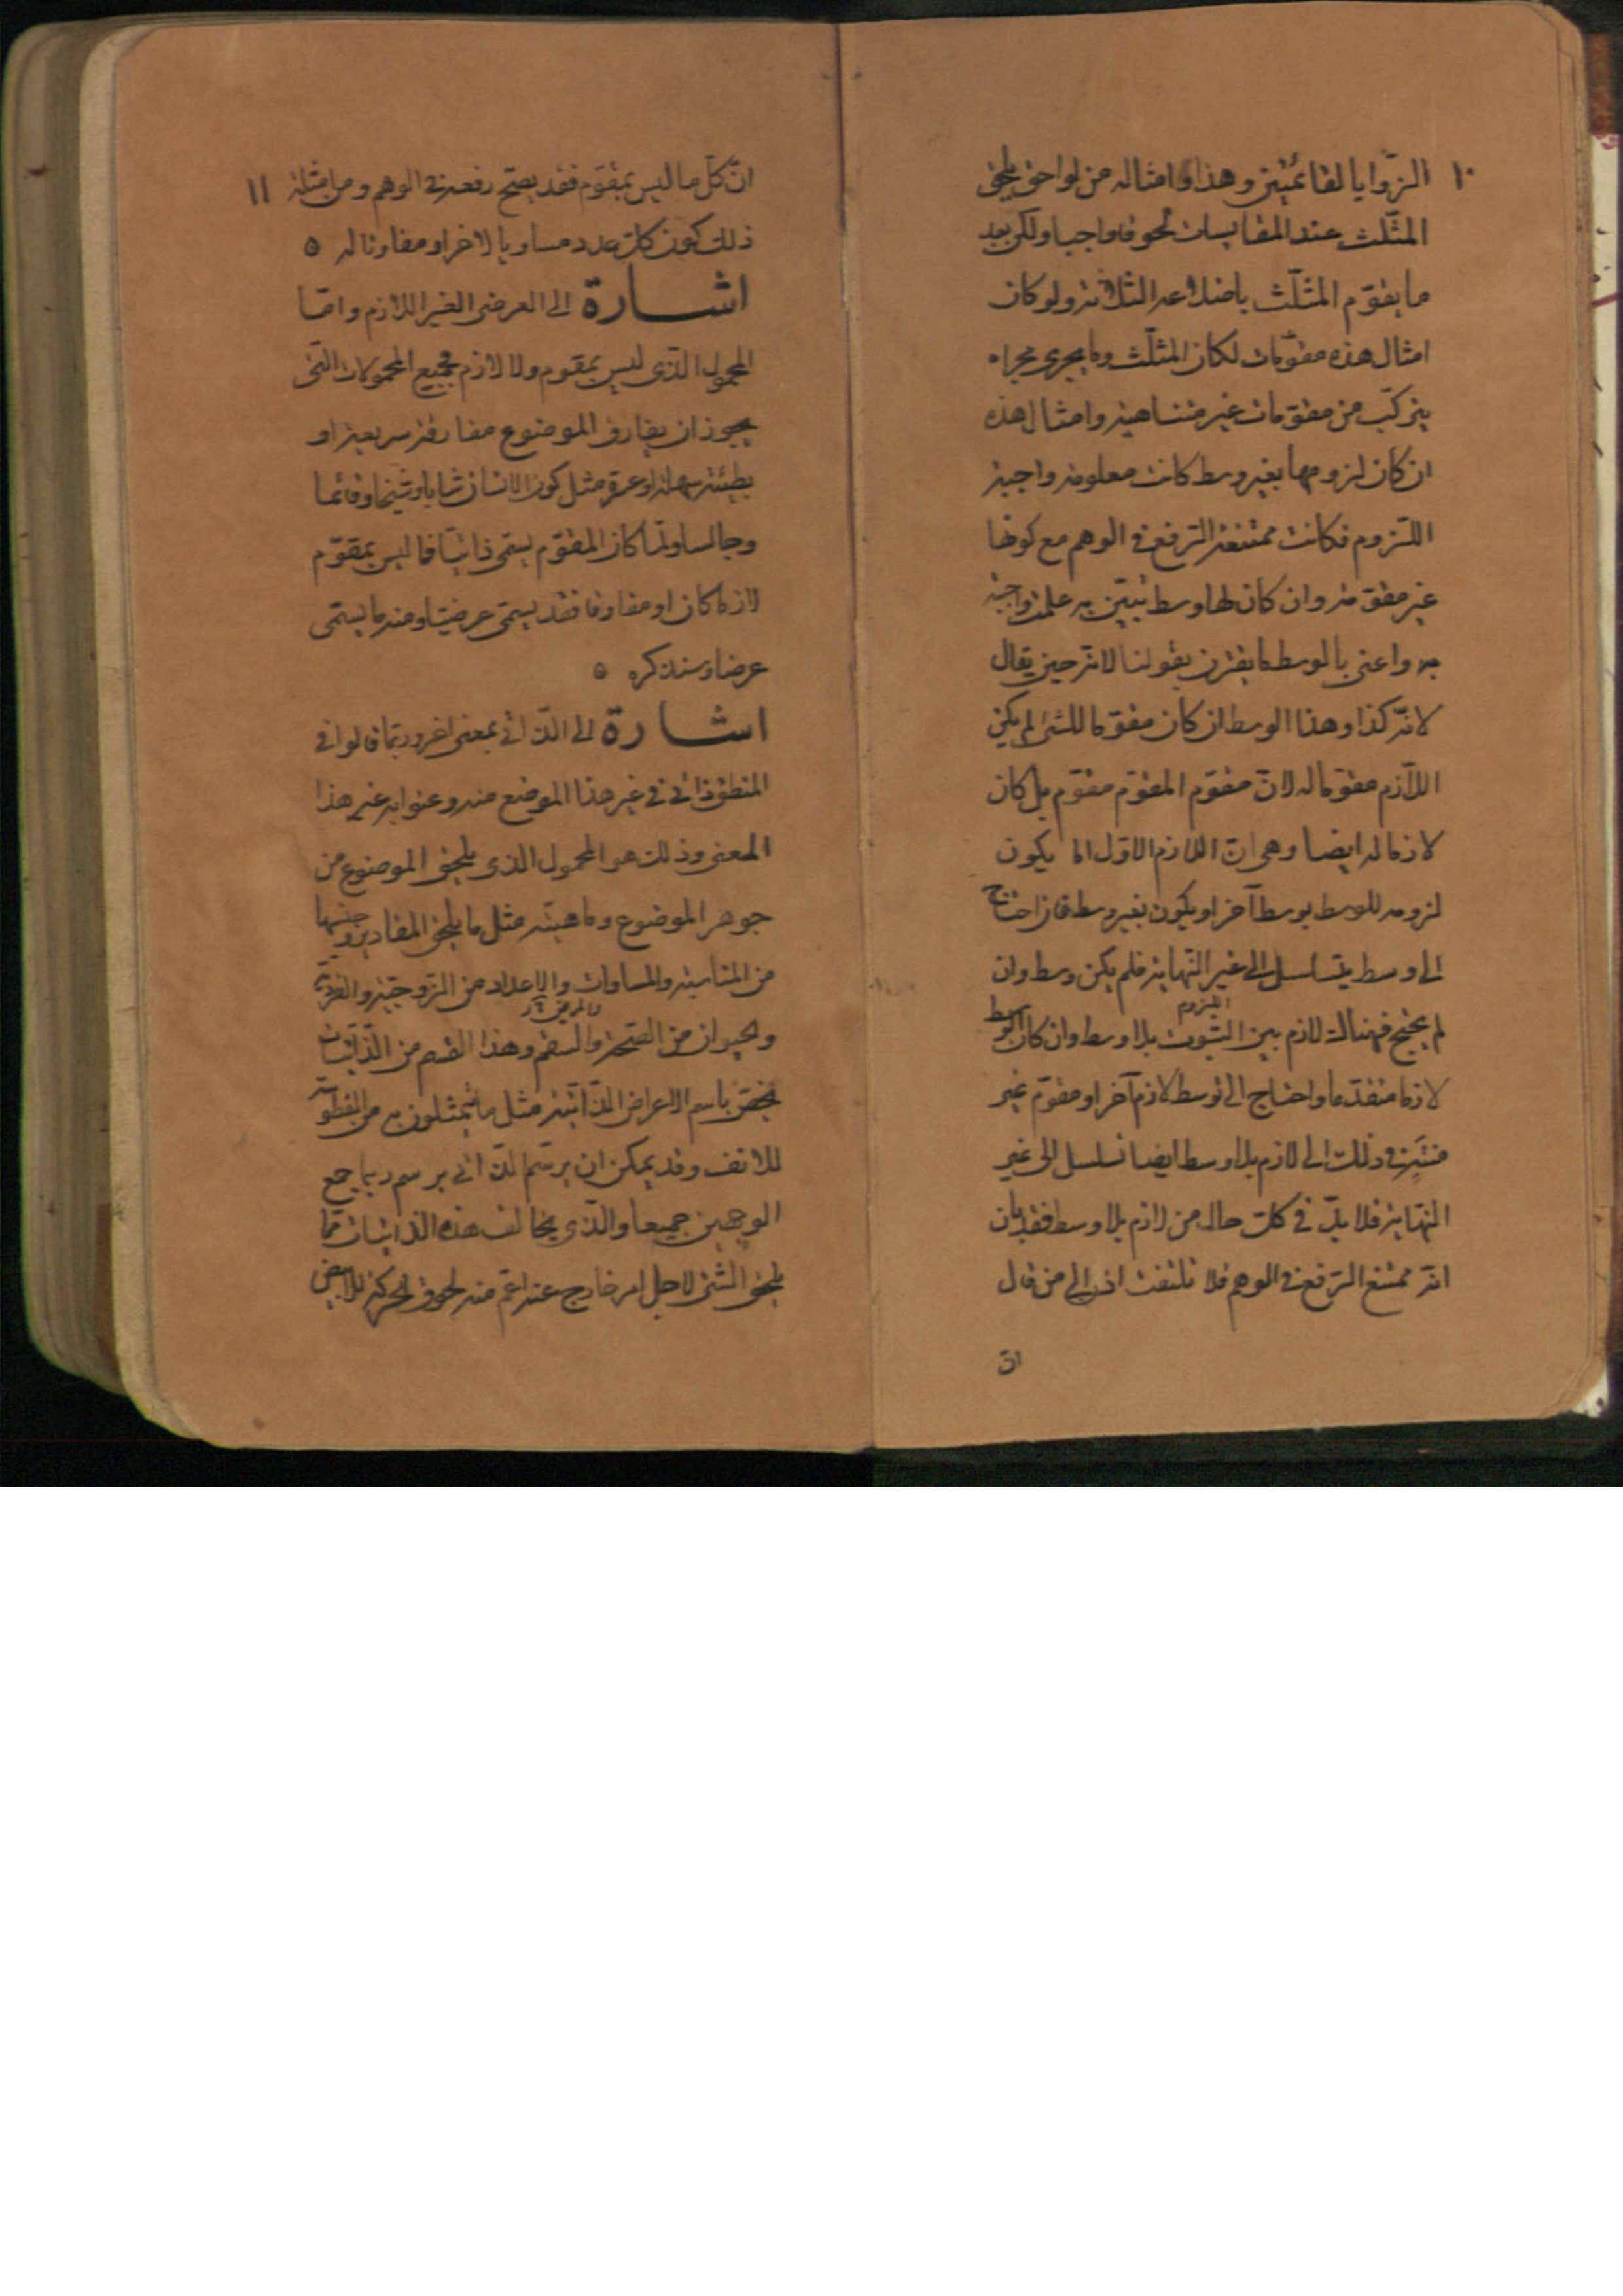 ١٠
الزوايا لقائمتين وهذا وامثاله من لواحق يلحق
المثلّث عند المقايسات لحوقا واجبا ولكن بعد
ما يتقوّم المثلّث باضلاعه الثلاثة ولو كان
امثال هذه مقوّمات لكان المثلّث وما يجرى مجراه
يتركّب من مقوّمات غير متناهية وامثال هذه
ان كان لزومها بغير وسط كانت معلومة واجبة
اللّزوم فكانت ممتنعة الرّفع فى الوهم مع كونها
غير مقوّمة وان كان لها وسط تبيّن به علمت واجبة
به واعنى بالوسط ما يقرن بقولنا لانّه حين يقال
لانّه كذا وهذا الوسط ان كان مقوّما للشئ لم يكن
اللّازم مقوّما له لانّ مقوّم المقوّم مقوّم بل كان
لازما له ايضا وهى انّ اللازم الاوّل اما يكون
لزومه للوسط بوسط آخر او يكون بغير وسط فان احتاج
الى وسط يتسلسل الى غير النّهاية فلم يكن وسط وان
لم يحتج فهناك لازم بين الثبوت بلا وسط وان كان الوسط
اللزوم
لازما متقدّما واحتاج الى توسط لازم آخر او مقوّم غير
منته فى ذلك الى لازم بلا وسط ايضا تسلسل الى غير
النّهاية فلا بدّ فى كلّ حال من لازم بلا وسط فقد بان
انّه ممتنع الرّفع فى الوهم فلا تلتفت اذن الى من قال
انّ
١١
انّ كلّ ما ليس بمقوّم فقد يصحّ رفعه فى الوهم ومن امثلة
ذلك كون كلّ عدد مساويا لاخر او مفاوتا له ٥
اشــارة الى العرضى الغير اللازم وامّا
المحمول الّذى ليس بمقوم ولا لازم فجميع المحمولات الّتى
يجوز ان يفارق الموضوع مفارقة سريعة او
بطيئة سهلة او عسرة مثل كون الانسان شابا وشيخا وقائما
وجالسا ولمّا كان المقوّم يسمّى ذاتيّا فما ليس بمقوّم
لازما كان او مفارقا فقد يسمّى عرضيّا ومنه ما يسمّى
عرضا وسنذكره ٥
اشــارة الى الذّاتى بمعنى اخر وربّما قالوا فى
المنطق ذاتى فى غير هذا الموضع منه وعنوا به غير هذا
المعنى وذلك هو المحمول الذى يلحق الموضوع من
جوهر الموضوع وماهيته مثل ما يلحق المقادير وجنسها
من المناسبة والمساوات والاعداد من الزّوجيّة والفرديّة
والحيوان من الصّحّة والسّقم وهذا القسم من الذّاتيّات
يخصّ باسم الاعراض الذّاتيّة مثل ما يتمثّلون به من الفطوسة
للانف وقد يمكن ان يرسّم الذّاتى برسم ربما جمع
الوجهين جميعا والّذى يخالف هذه الذّاتيات فما
يلحق الشئ لاجل امر خارج عنه اعمّ منه لحوق الحركة للابيض